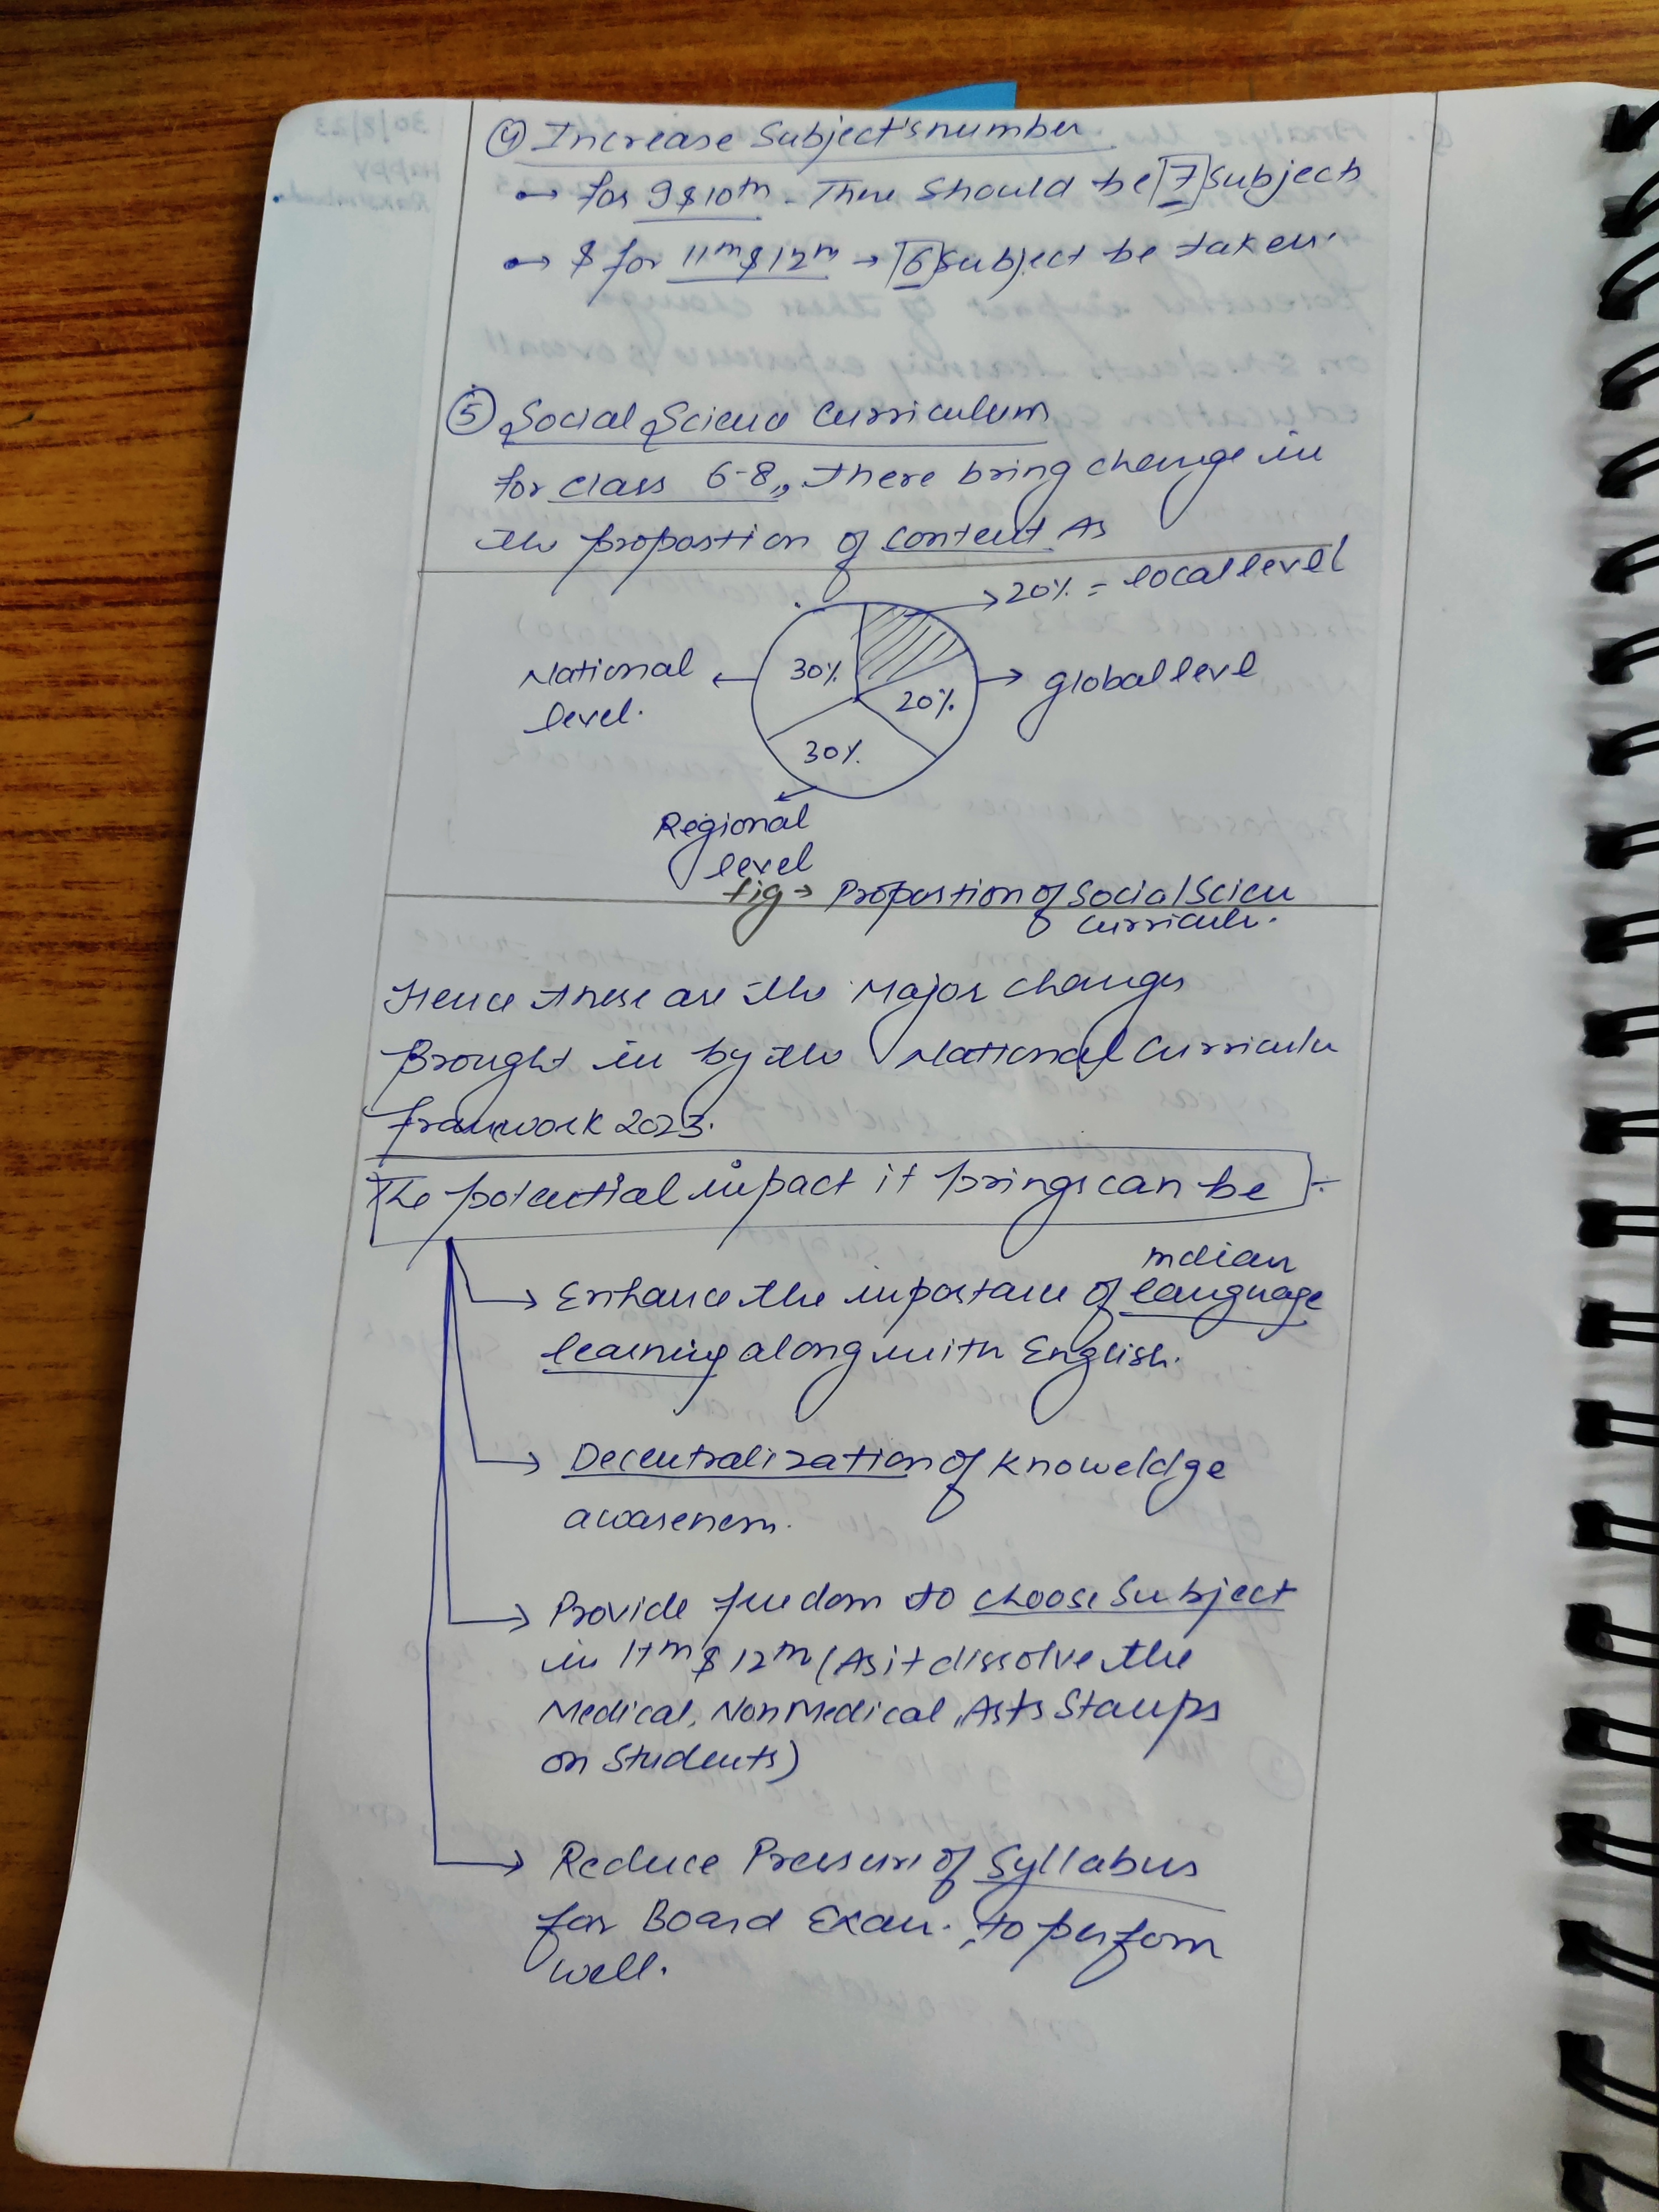 ④ Increase Subject's number
→ for 9 & 10th - There should be 7 Subjects
→ & for 11th & 12th → 6 Subject be taken.
⑤ Social Science Curriculum
for class 6-8, there bring change in
the proportion of content As
20% = local level
National level.
30%
20%
global level
30%
Regional level
fig → Proportion of Social Scien
Curricul.
Hence these are the Major changes
Brought in by the National Curriculu
framework 2023.
The potential impact it brings can be :-
Indian
→ Enhance the importance of language
learning along with English.
→ Decentralization of knoweldge
awareness.
→ Provide freedom to choose Subject
in 11th & 12th (As it dissolve the
Medical, Non Medical, Arts Stamps
on Students)
→ Reduce Pressure of Syllabus
for Board Exam. to perform
well.
30/8/23
Happy